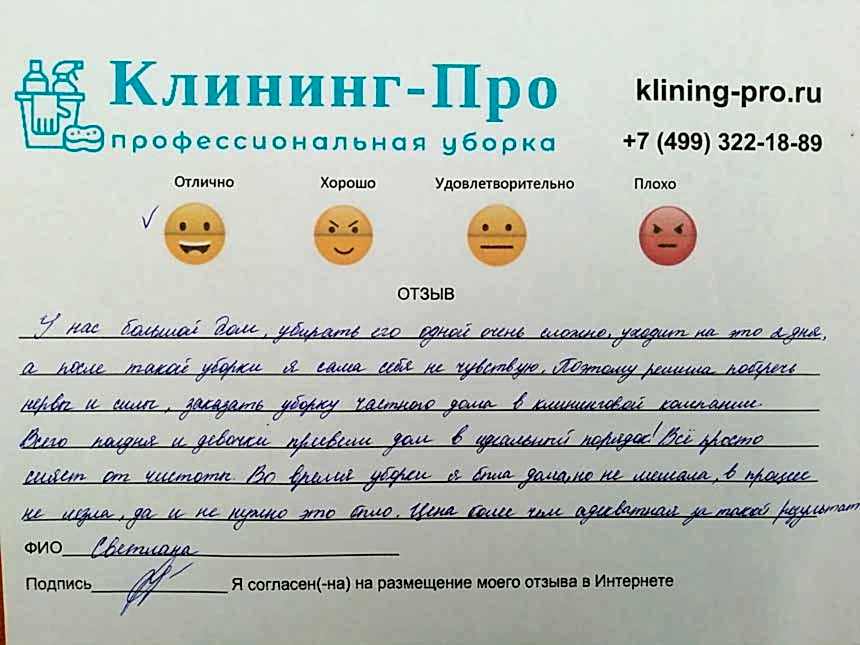 Клининг-Про
профессиональная уборка
klining-pro.ru
+7 (499) 322-18-89
Отлично Хорошо Удовлетворительно Плохо
ОТЗЫВ
У нас большой дом, убирать его одной очень сложно, уходит на это 2 дня,
а после такой уборки я сама себя не чувствую. Поэтому решила поберечь
нервы и силы, заказать уборку частного дома в клининговой компании.
Всего полдня и девочки привели дом в идеальный порядок! Всё просто
сияет от чистоты. Во время уборки я была дома, но не мешала, в процесс
не лезла, да и не нужно это было. Цена более чем адекватная за такой результат
ФИО Светлана
Подпись Я согласен(-на) на размещение моего отзыва в Интернете